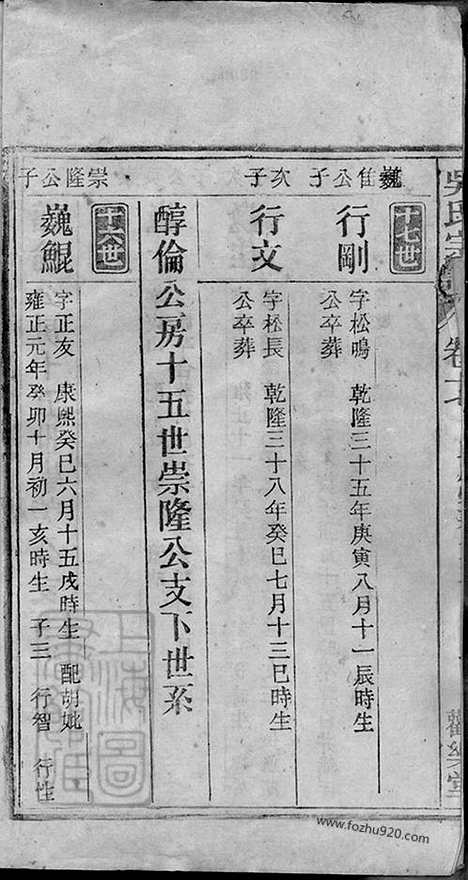 吳氏宗
卷十
十七世
巍隹公子
行剛
字松鳴 乾隆三十五年庚寅八月十一辰時生
公卒葬
次子
行文
字松長 乾隆三十八年癸巳七月十三巳時生
公卒葬
醇倫公房十五世崇隆公支下世系
十六世
崇隆公子
巍鯤
字正友 康熙癸巳六月十五戌時生 配胡妣
雍正元年癸卯十月初一亥時生 子三 行智 行性
上海圖
www.fozhu920.com